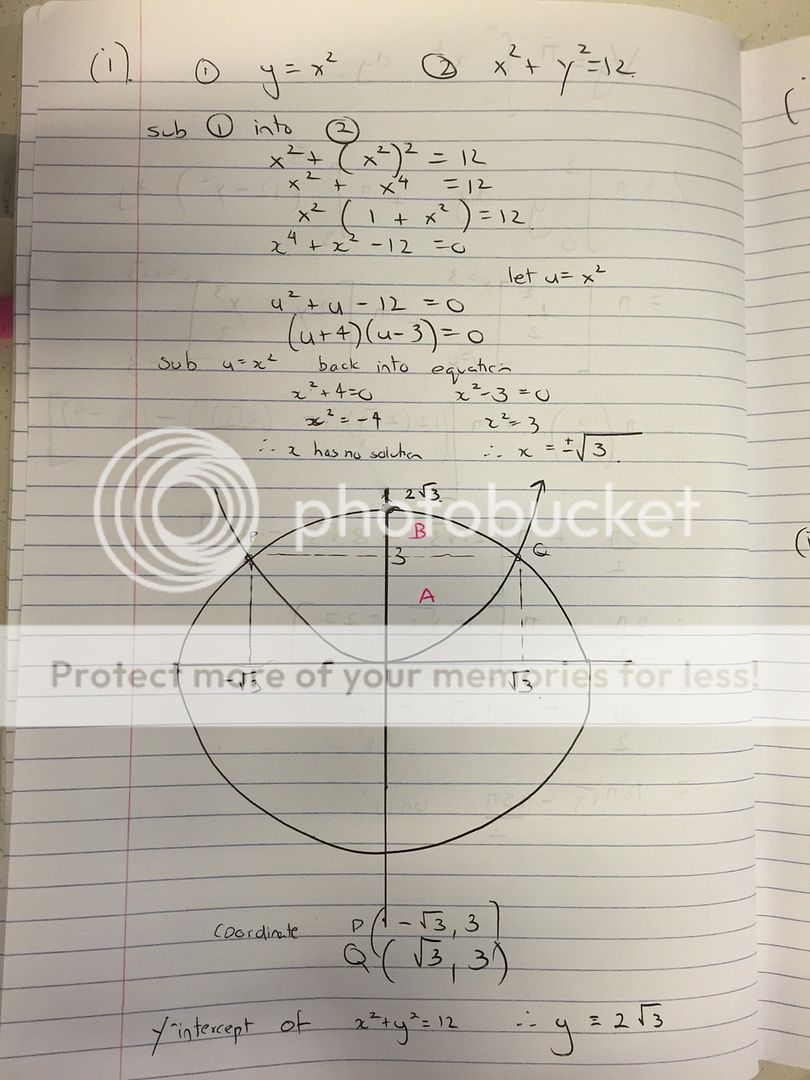 (i). ① y = x² ② x² + y² = 12
sub ① into ②
x² + (x²)² = 12
x² + x⁴ = 12
x² (1 + x²) = 12
x⁴ + x² - 12 = 0
let u = x²
u² + u - 12 = 0
(u+4)(u-3) = 0
Sub u = x² back into equation
x² + 4 = 0 x² - 3 = 0
x² = -4 x² = 3
∴ x has no solution ∴ x = ±√3
2√3
photobucket
B
P 3 Q
A
Protect more of your memories for less!
-√3 √3
Coordinate P(-√3, 3)
Q(√3, 3)
y-intercept of x² + y² = 12 ∴ y = 2√3